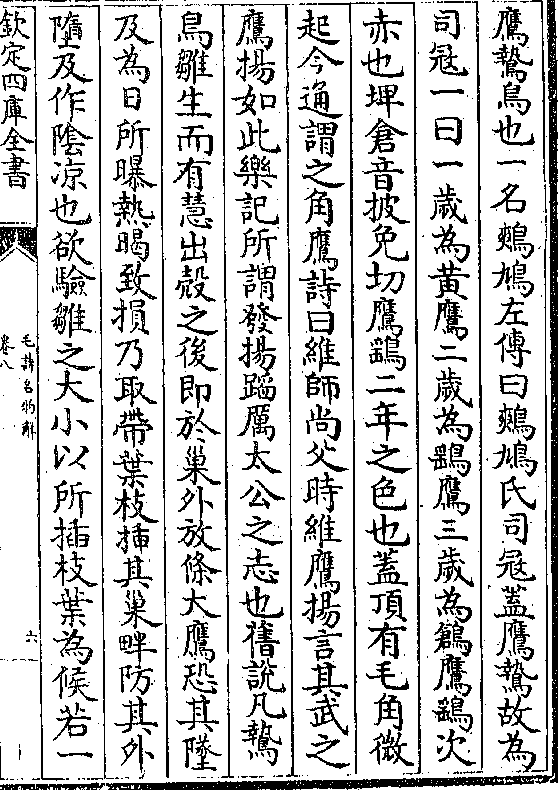 鷹鷙鳥也一名鷞鳩左傳曰鷞鳩氏司冦蓋鷹鷙故為
司冦一曰一歲為黃鷹二歲為鷂鷹三歲為鶬鷹鷂次
赤也埤倉音披免切鷹鷂二年之色也蓋頂有毛角微
起今通謂之角鷹詩曰維師尚父時維鷹揚言其武之
鷹揚如此樂記所謂發揚蹈厲太公之志也舊說凡鷙
鳥雛生而有慧出殼之後即於巢外放條大鷹恐其墜
及為日所曝熱暍致損乃取帶葉枝揷其巢畔防其外
墮及作陰涼也欲驗雛之大小以所揷枝葉為候若一
欽定四庫全書
毛詩名物解
卷八
六